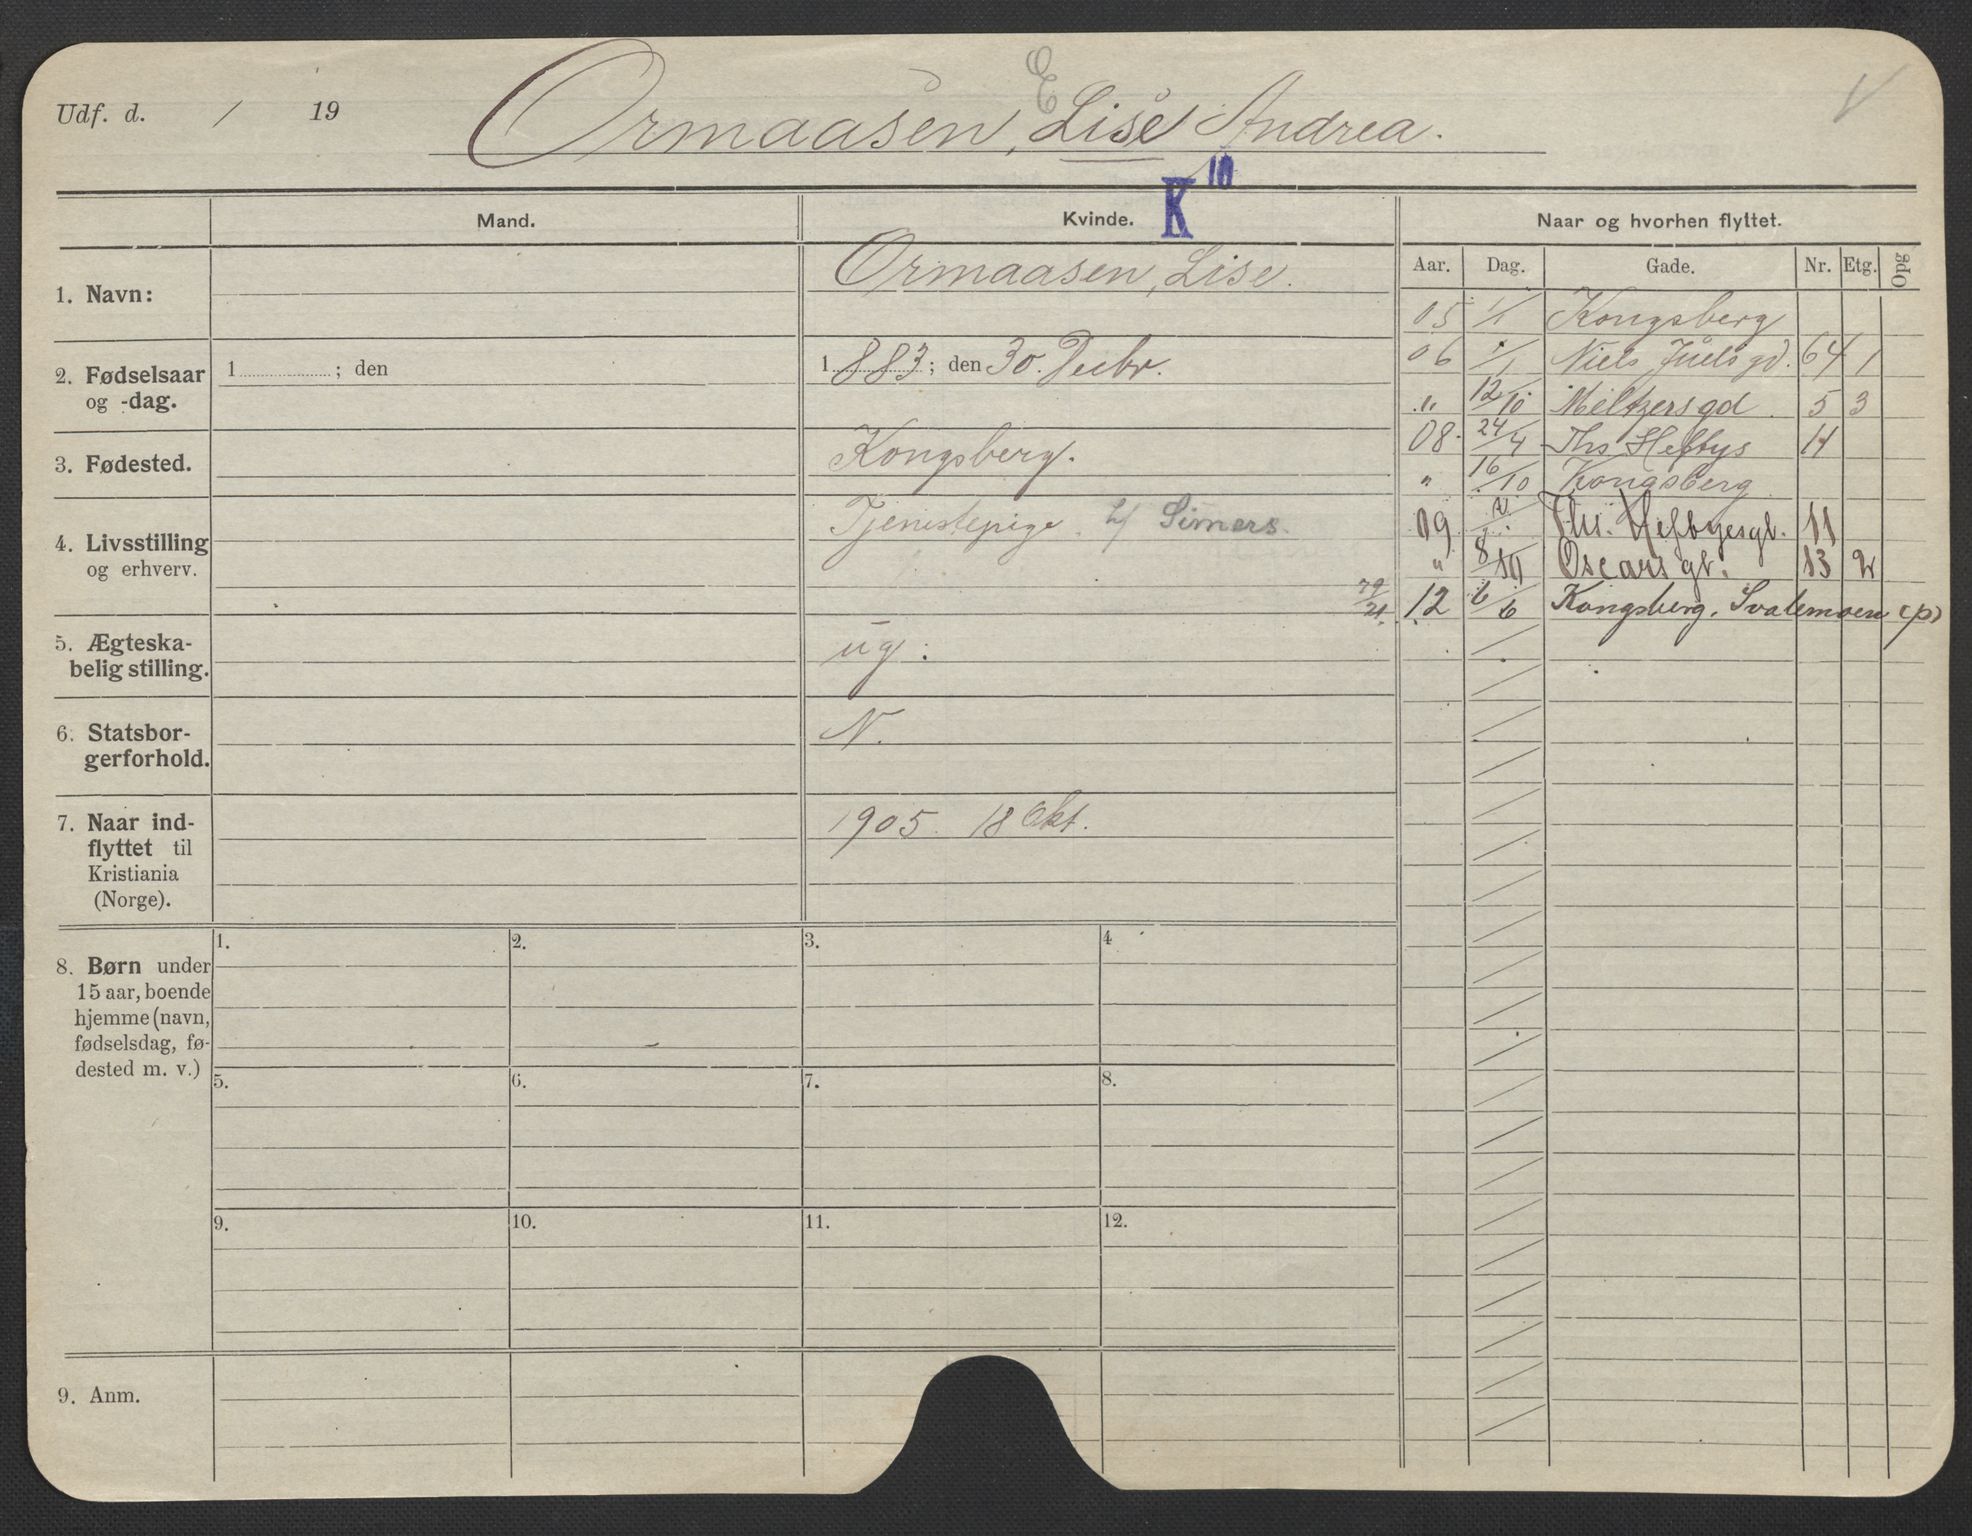 Udf. d. / 19
E
Ormaasen, Lise Andrea.
V
K 10
Mand.
Kvinde.
Naar og hvorhen flyttet.
Aar. Dag. Gade. Nr. Etg. Opg
1. Navn:
Ormaasen, Lise.
2. Fødselsaar
og -dag.
1 ; den
1883; den 30. Decbr.
3. Fødested.
Kongsberg.
4. Livsstilling
og erhverv.
Tjenestepige h/ Simers.
5. Ægteska-
belig stilling.
ug.
6. Statsbor-
gerforhold.
N.
7. Naar ind-
flyttet til
Kristiania
(Norge).
1905. 18 Okt.
05 1/1 Kongsberg
06 1/1 Niels Juels gd. 64 1
" 12/10 Meltzers gd. 5 3
08 24/4 Ths Heftys 11
" 16/10 Kongsberg
09 Ths. Heftyesgt. 11
" 8/10 Oscars gt. 13 2
12 6/6 Kongsberg, Svalemoen (p)
8. Børn under
15 aar, boende
hjemme (navn,
fødselsdag, fø-
dested m. v.)
1. 2. 3. 4
5. 6. 7. 8.
9. 10. 11. 12.
9. Anm.